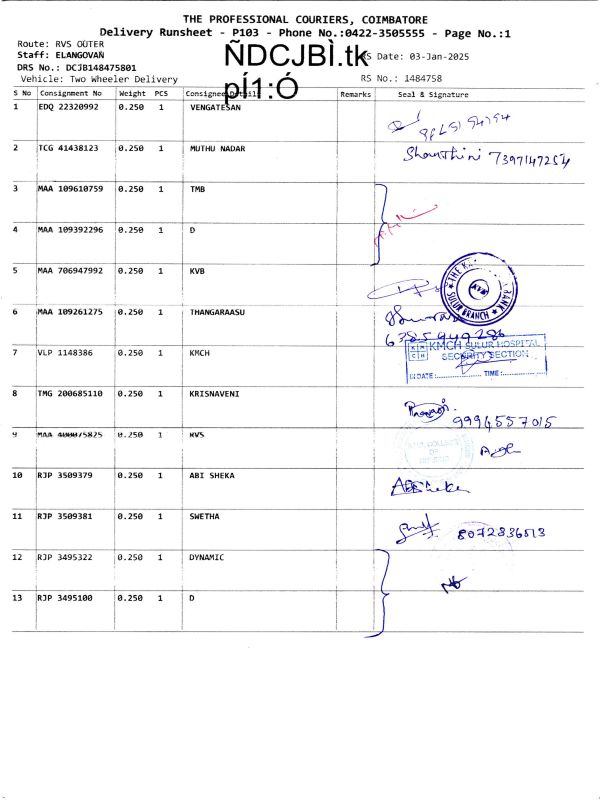 THE PROFESSIONAL COURIERS, COIMBATORE
Delivery Runsheet - P103 - Phone No.:0422-3505555 - Page No.:1
Route: RVS OUTER
Staff: ELANGOVAN
ÑDCJBÌ.tk
S Date: 03-Jan-2025
DRS No.: DCJB148475801
Vehicle: Two Wheeler Delivery
pÍ1:Ó
RS No.: 1484758
S No Consignment No Weight PCS Consignee Details Remarks Seal & Signature
1 EDQ 22320992 0.250 1 VENGATESAN
2 TCG 41438123 0.250 1 MUTHU NADAR Shanthini 7397147254
3 MAA 109610759 0.250 1 TMB
4 MAA 109392296 0.250 1 D
5 MAA 706947992 0.250 1 KVB
SULUR BRANCH BANK
6 MAA 109261275 0.250 1 THANGARAASU
6385949286
7 VLP 1148386 0.250 1 KMCH
KMCH SULUR HOSPITAL
SECURITY SECTION
DATE: TIME:
8 TMG 200685110 0.250 1 KRISNAVENI
9994557015
9 MAA 400075825 0.250 1 RVS
10 RJP 3509379 0.250 1 ABI SHEKA
11 RJP 3509381 0.250 1 SWETHA
8072836513
12 RJP 3495322 0.250 1 DYNAMIC
13 RJP 3495100 0.250 1 D